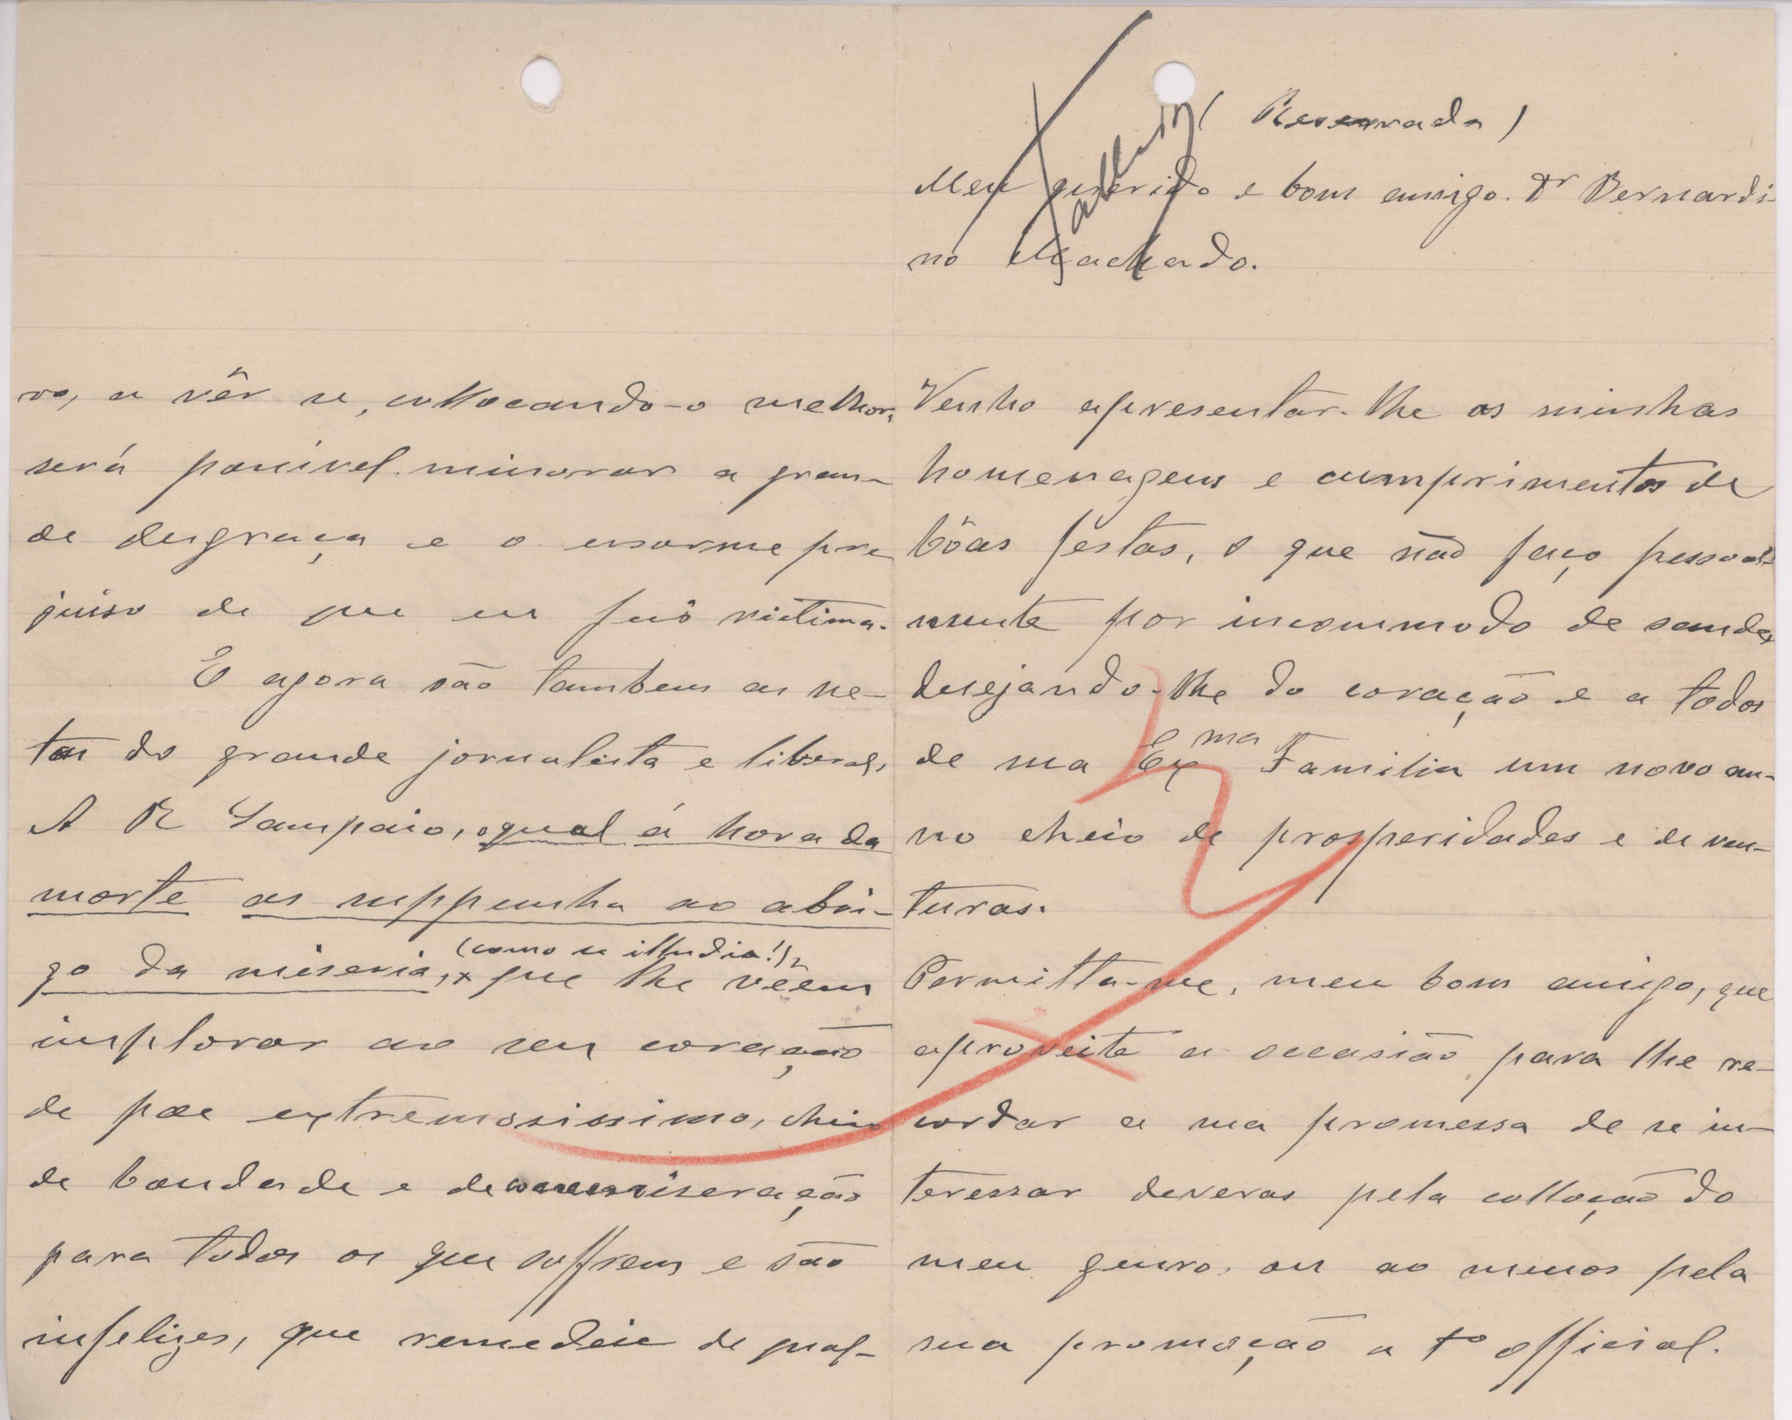 (Reservada)
Meu querido e bom amigo. Dr Bernardi-
no Machado.
Venho apresentar-lhe as minhas
homenagens e cumprimentos de
bôas féstas, o que não faço pessoal-
mente por incommodo de saude,
desejando-lhe do coração e a todos
de sua Exma Familia um novo an-
no cheio de prosperidades e de ven-
turas.
Permitta-me, meu bom amigo, que
aproveite a occasião para lhe re-
cordar a sua promessa de se in-
teressar deveras pela collocação do
meu genro, ou ao menos pela
sua promoção a 1o official.
vo, a vêr se, collocando-o melhor,
será possivel minorar a gran-
de desgraça e o enorme pre
juiso de que eu fui victima.
E agora são tambem as ne-
tas do grande jornalista e liberal,
A R Sampaio, o qual á hora da
morte as suppunha ao abri-
go da miseria, (como se illudia!), que lhe vêem
implorar ao seu coração
de pae extremosissimo, cheio
de bondade e de commiseração
para todos os que soffrem e são
infelizes, que remedeie de qual-